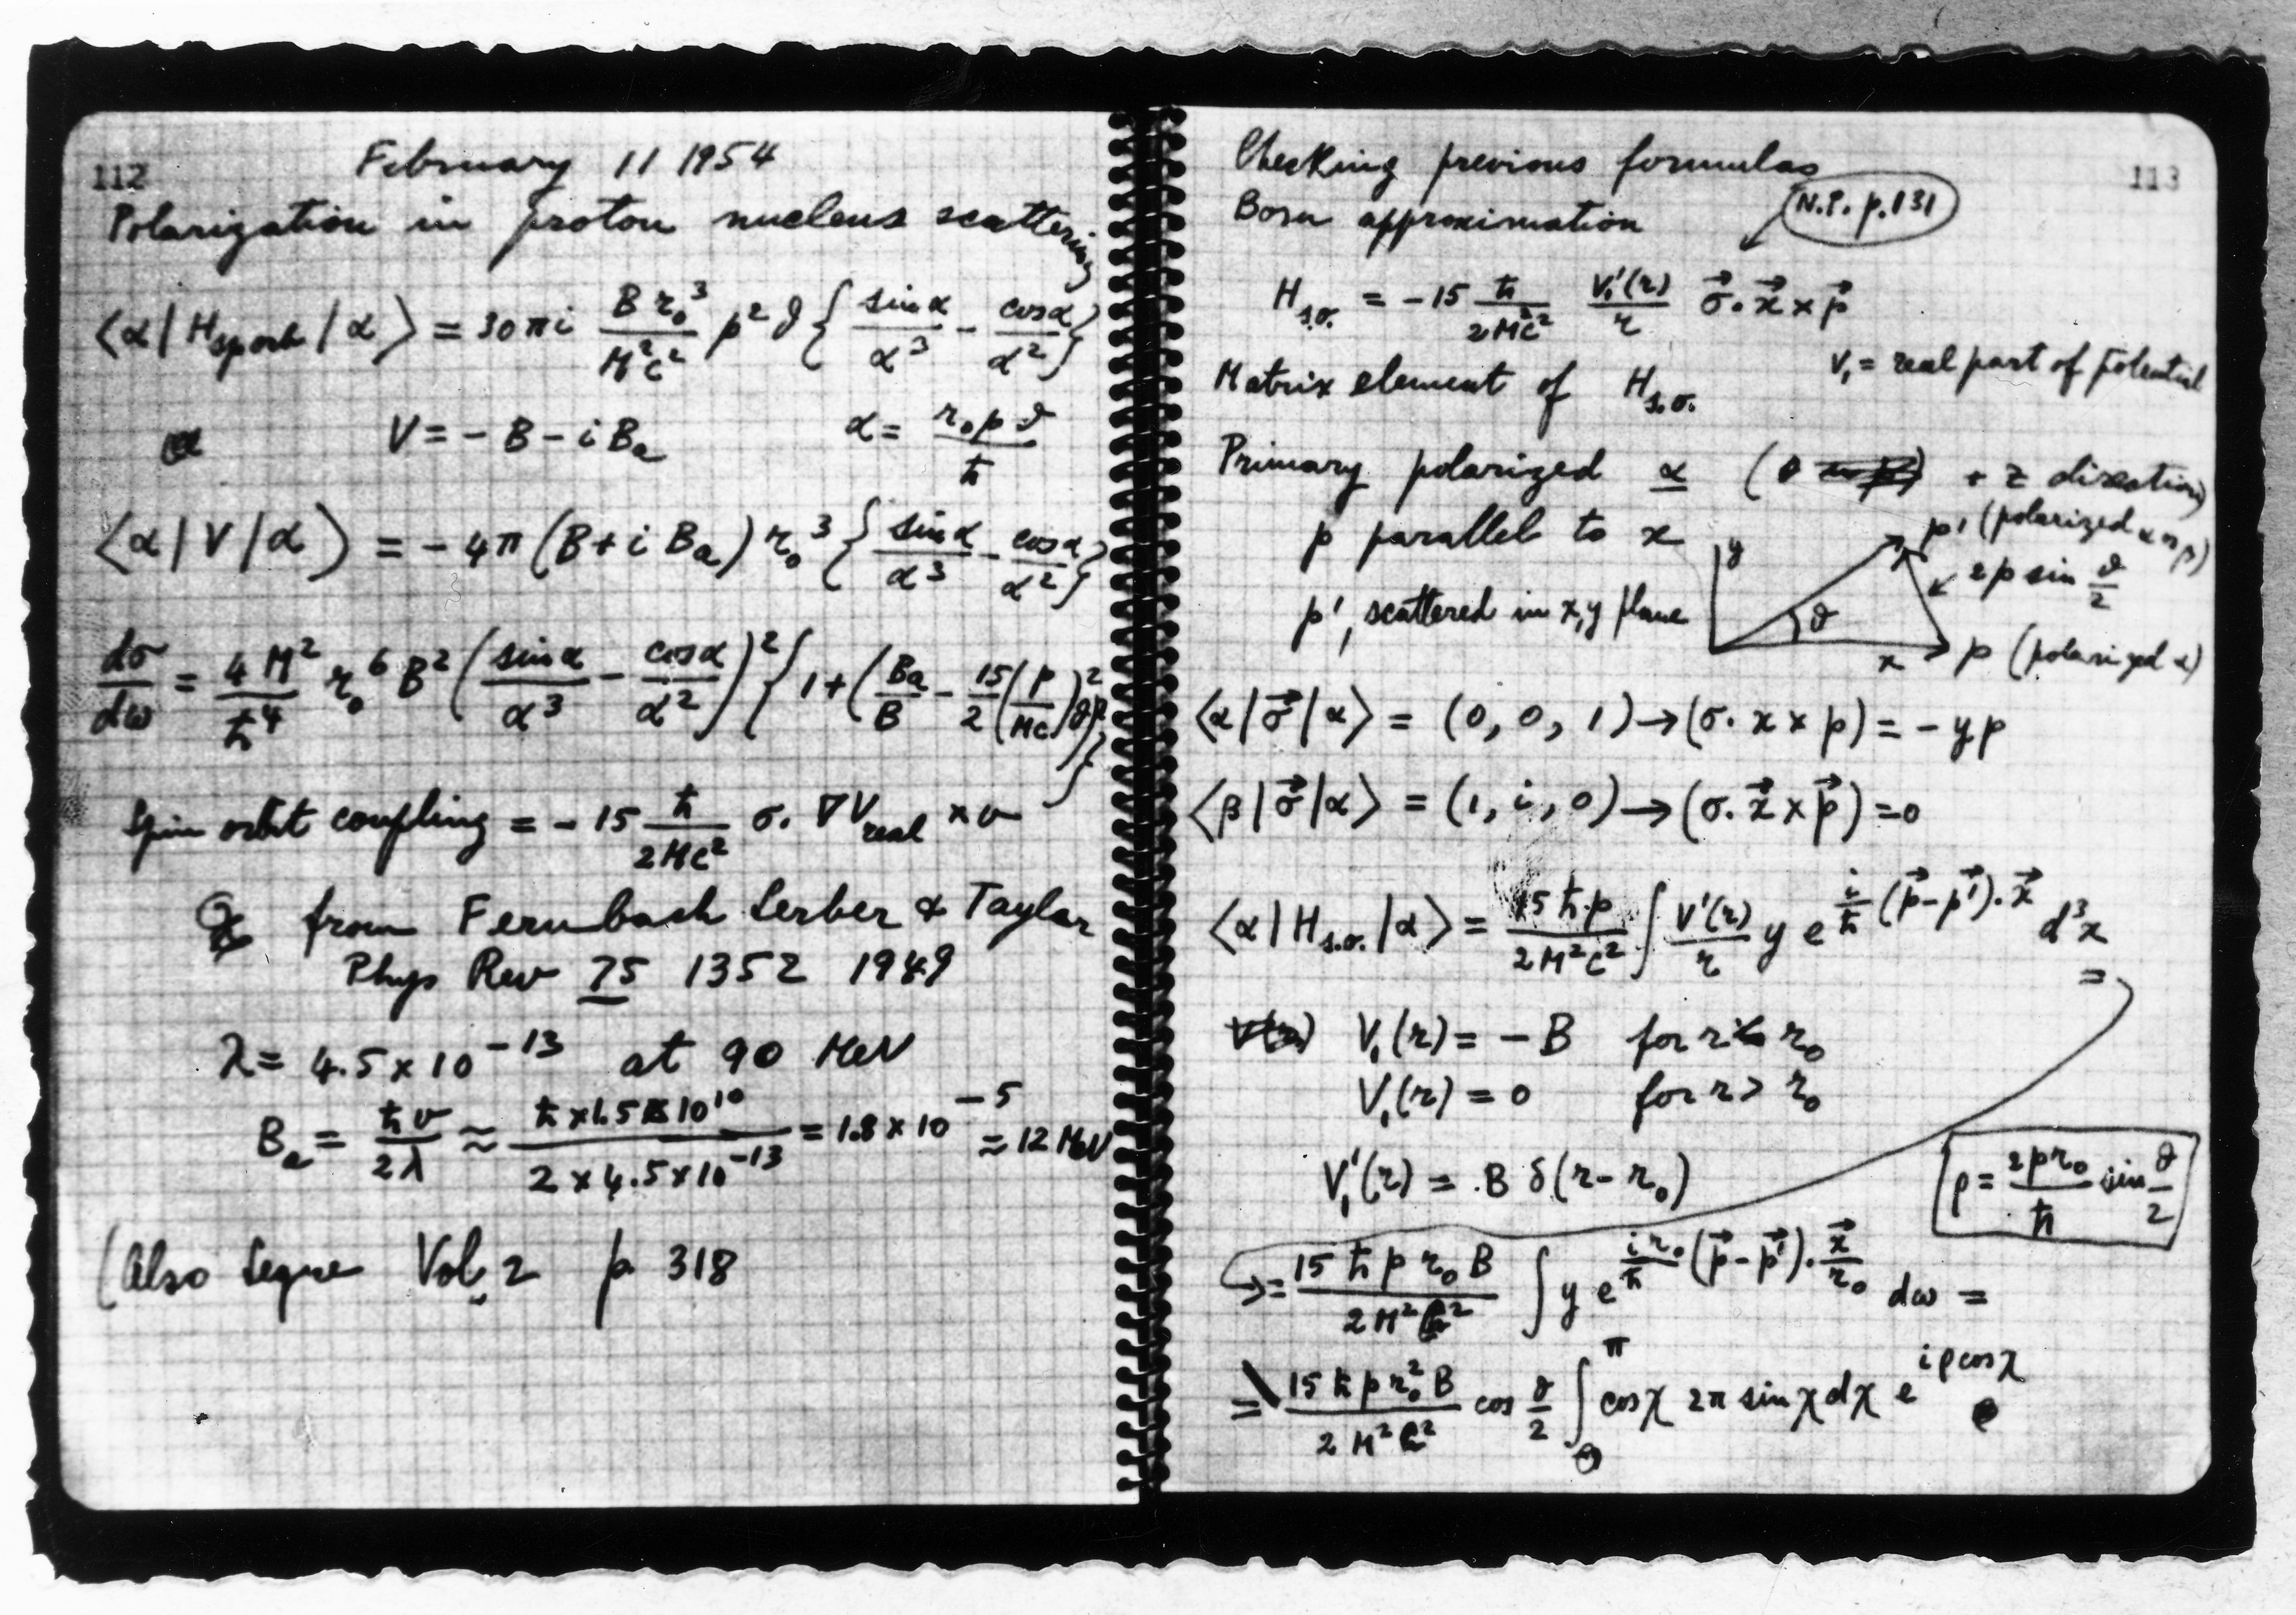 112
February 11 1954
Polarization in proton nucleus scattering
⟨α|H_sporb|α⟩ = 30πi (B r₀³ / M²c²) p² ϑ { sinα/α³ − cosα/α² }
V = − B − i Bₐ    α = r₀ p ϑ / ħ
⟨α|V|α⟩ = − 4π (B + i Bₐ) r₀³ { sinα/α³ − cosα/α² }
dσ/dω = (4 M² / ħ⁴) r₀⁶ B² ( sinα/α³ − cosα/α² )² { 1 + ( Bₐ/B − 15/2 (p/Mc)² ϑ )² }
Spin orbit coupling = − 15 ħ/2Mc² σ. ∇V_real × v
from Fernbach Serber & Taylor
Phys Rev 75 1352 1949
λ = 4.5 × 10⁻¹³ at 90 MeV
Bₐ = ħv/2λ ≈ ħ × 1.5 × 10¹⁰ / 2 × 4.5 × 10⁻¹³ = 1.8 × 10⁻⁵ ≈ 12 MeV
(Also Segre Vol. 2 p 318
113
Checking previous formulas
Born approximation
N.P. p. 131
H_s.o. = − 15 ħ/2M²c² V₁'(r)/r σ⃗ . x⃗ × p⃗
V₁ = real part of potential
Matrix element of H_s.o.
Primary polarized α ( + z direction)
p parallel to x
p', scattered in x, y plane
y
p' (polarized α or β)
2p sin ϑ/2
ϑ
x
p (polarized α)
⟨α|σ⃗|α⟩ = (0, 0, 1) → (σ. x × p) = − y p
⟨β|σ⃗|α⟩ = (1, i, 0) → (σ. x⃗ × p⃗) = 0
⟨α|H_s.o.|α⟩ = 15 ħ p / 2M²c² ∫ V'(r)/r y e^{i/ħ (p⃗ − p⃗') . x⃗} d³x =
V₁(r) = − B for r < r₀
V₁(r) = 0 for r > r₀
V₁'(r) = B δ(r − r₀)
ρ = 2 p r₀ / ħ sin ϑ/2
= 15 ħ p r₀ B / 2 M² c² ∫ y e^{i r₀/ħ (p⃗ − p⃗') . x⃗/r₀} dω =
= 15 ħ p r₀² B / 2 M² c² cos ϑ/2 ∫₀^π cosχ 2π sinχ dχ e^{iρ cosχ}